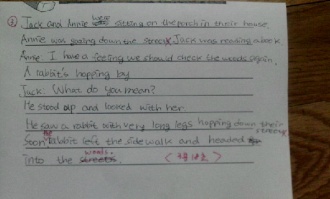 ① Jack and Annie were sitting on the porch in their house.
Annie was gazing down the street. Jack was reading a book
Annie: I have a feeling we should check the woods again,
A rabbit's hopping by
Jack: What do you mean?
He stood up and looked with her.
He saw a rabbit with very long legs hopping down their street
Soon rabbit left the sidewalk and headed
into the streets. woods.